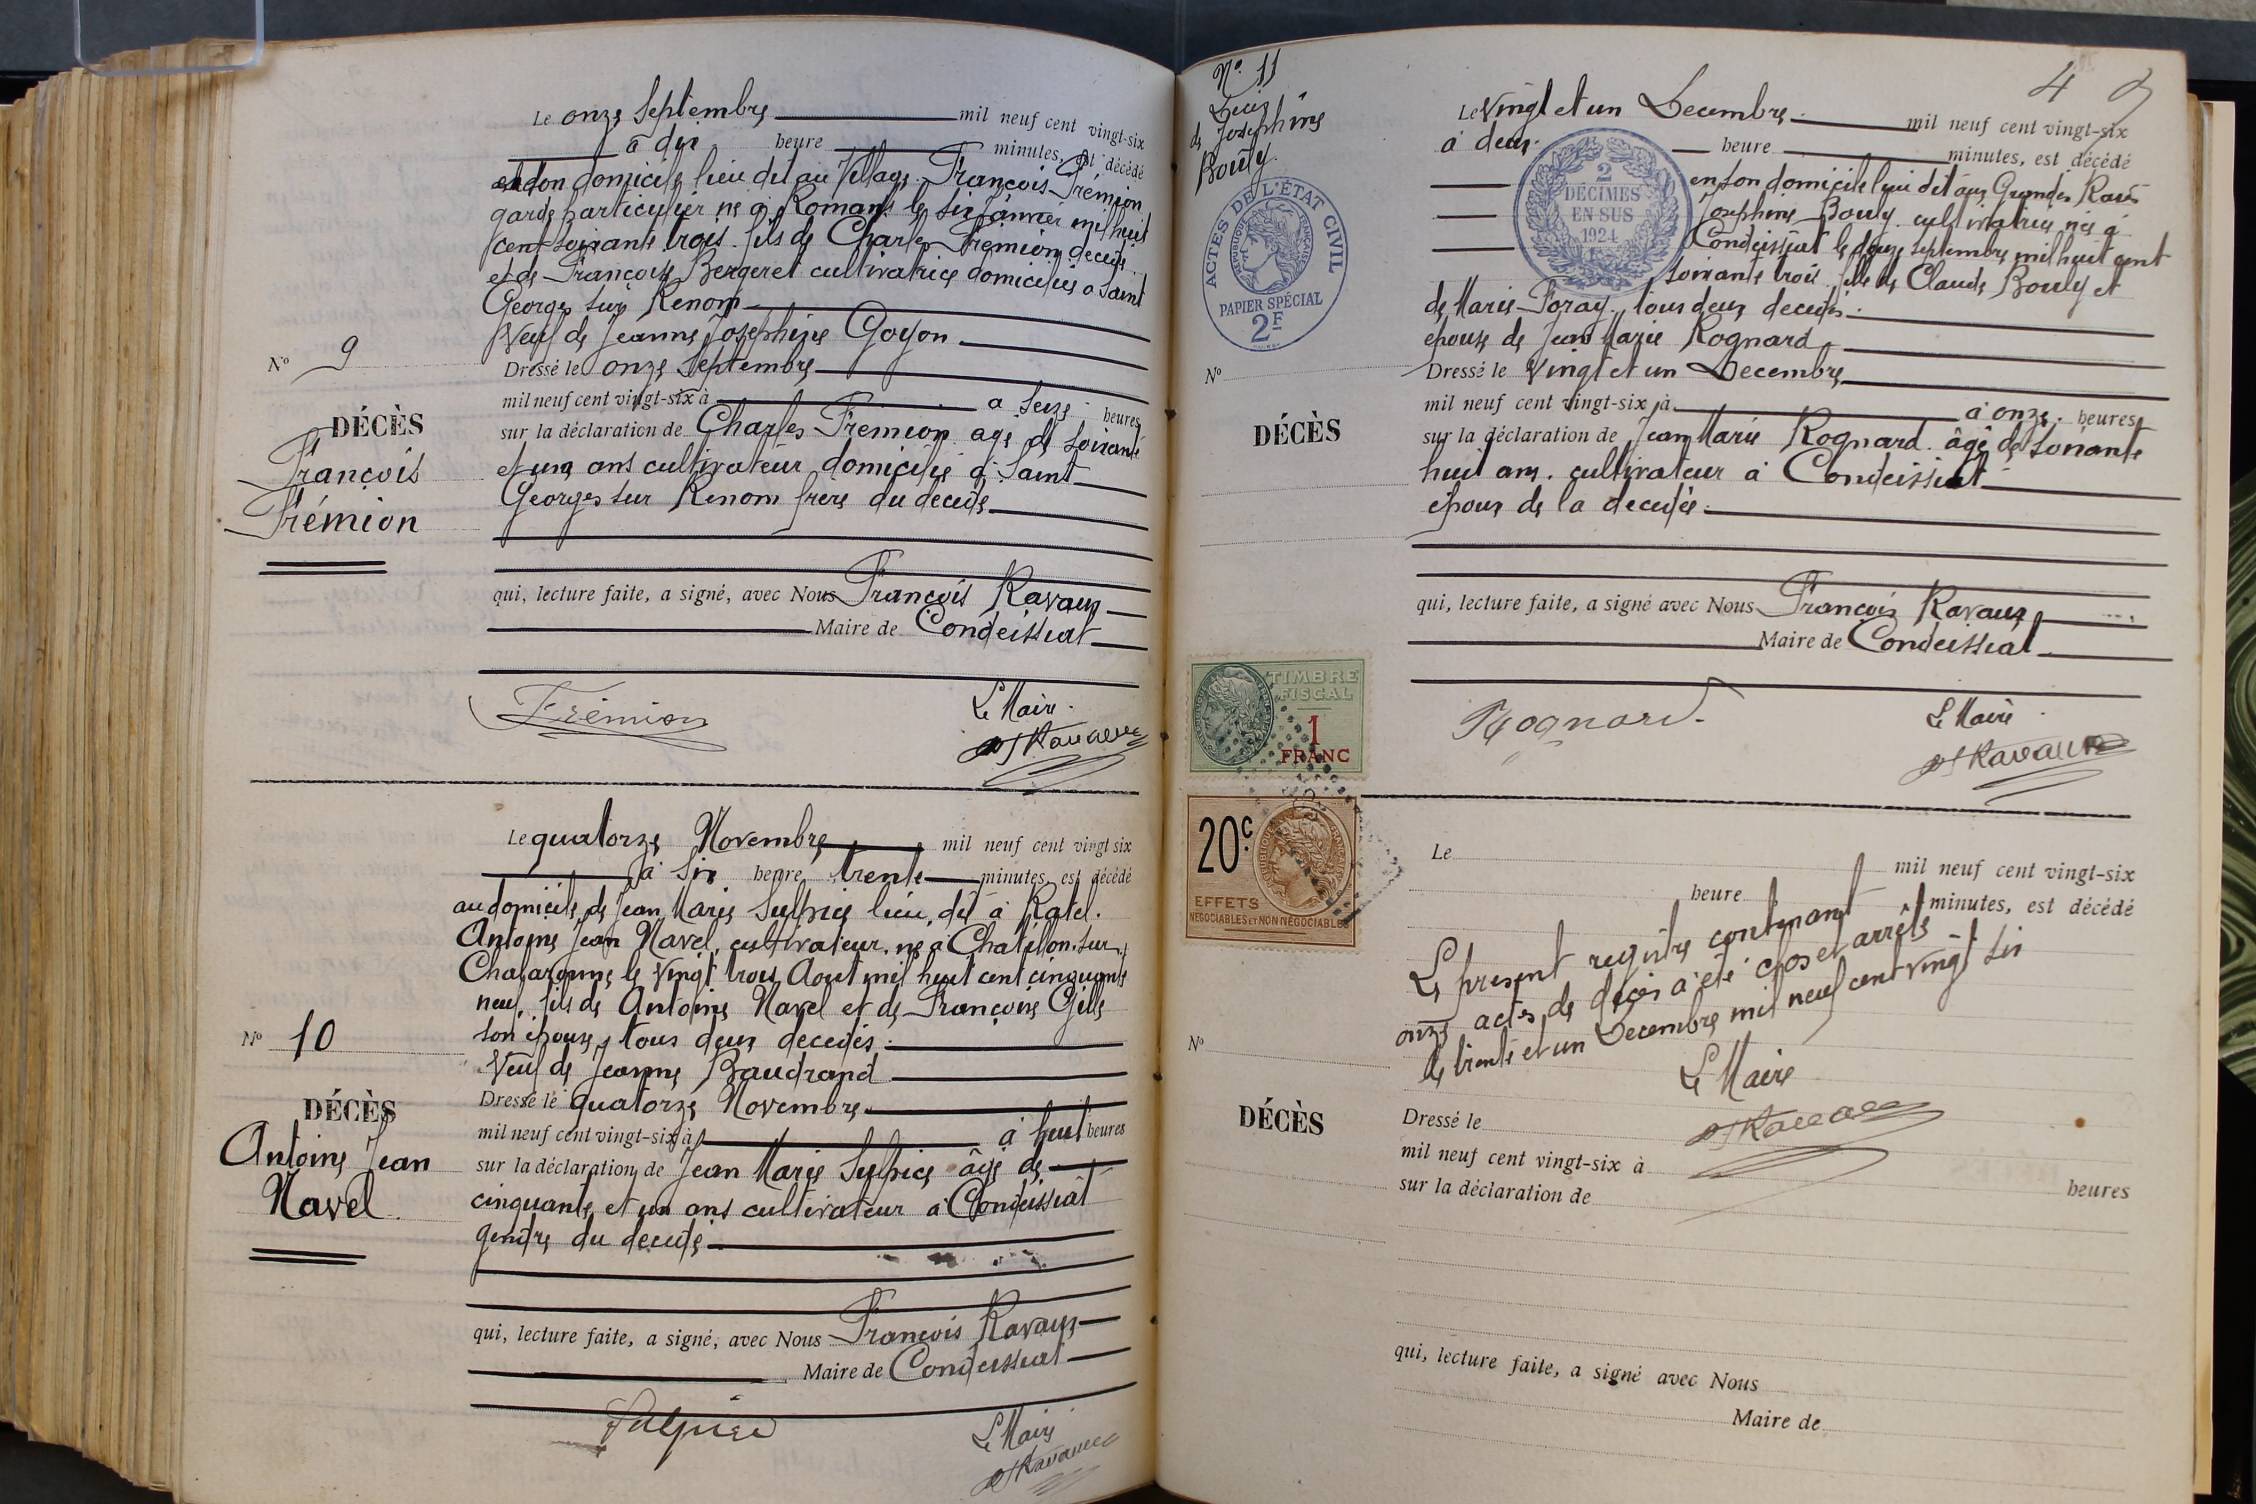 Le onze Septembre mil neuf cent vingt-six
à dix heure minutes, est décédé
en son domicile lieu dit au Village François Frémion
garde particulier né à Romans le six Janvier mil huit
cent soixante trois fils de Charles Frémion décédé
et de Françoise Bergeret cultivatrice domiciliée à Saint
Georges sur Renom
Veuf de Jeanne Josephine Goyon
Dressé le onze Septembre
mil neuf cent vingt-six à à seize heures
sur la déclaration de Charles Frémion agé de soixante
et un ans cultivateur domicilié à Saint
Georges sur Renom frère du décédé
qui, lecture faite, a signé, avec Nous François Ravaux
Maire de Condeissiat
Frémion
Le Maire
Ravaux
N° 9
DÉCÈS
François
Frémion
Le quatorze Novembre mil neuf cent vingt six
à six heure trente minutes, est décédé
au domicile de Jean Marie Sulpice lieu dit à Ratel.
Antoine Jean Navel, cultivateur, né à Chatillon sur
Chalaronne le vingt trois Aout mil huit cent cinquante
neuf, fils de Antoine Navel et de Françoise
son épouse, tous deux decedés
Veuf de Jeanne Baudrand
Dressé le quatorze Novembre
mil neuf cent vingt-six à à huit heures
sur la déclaration de Jean Marie Sulpice âgé de
cinquante et un ans cultivateur à Condeissiat
gendre du decédé
qui, lecture faite, a signé, avec Nous François Ravaux
Maire de Condeissiat
Sulpice
Le Maire
Ravaux
N° 10
DÉCÈS
Antoine Jean
Navel
N° 11
Décès
de Josephine
Bouly
ACTES DE L'ÉTAT CIVIL
RÉPUBLIQUE FRANÇAISE
PAPIER SPÉCIAL
2F
N°
DÉCÈS
4
Le vingt et un Decembre mil neuf cent vingt-six
à deux heure minutes, est décédé
2
DÉCIMES
EN SUS
1924
en son domicile lieu dit aux Grandes Raies
Josephine Bouly cultivatrice née à
Condeissiat le douze septembre mil huit cent
soixante trois fille de Claude Bouly et
de Marie Foray tous deux decedés
epouse de Jean Marie Rognard
Dressé le Vingt et un Decembre
mil neuf cent vingt-six à à onze heures
sur la déclaration de Jean Marie Rognard âgé de soixante
huit ans. cultivateur à Condeissiat
époux de la decedée
qui, lecture faite, a signé avec Nous François Ravaux
Maire de Condeissiat
Rognard
Le Maire
Ravaux
TIMBRE
FISCAL
1
FRANC
20c
EFFETS
NÉGOCIABLES ET NON NÉGOCIABLES
N°
DÉCÈS
Le mil neuf cent vingt-six
heure minutes, est décédé
Le present registre contenant
onze actes de décès a été clos et arrêté
le trente et un Decembre mil neuf cent vingt six
Le Maire
Ravaux
Dressé le
mil neuf cent vingt-six à
heures
sur la déclaration de
qui, lecture faite, a signé avec Nous
Maire de